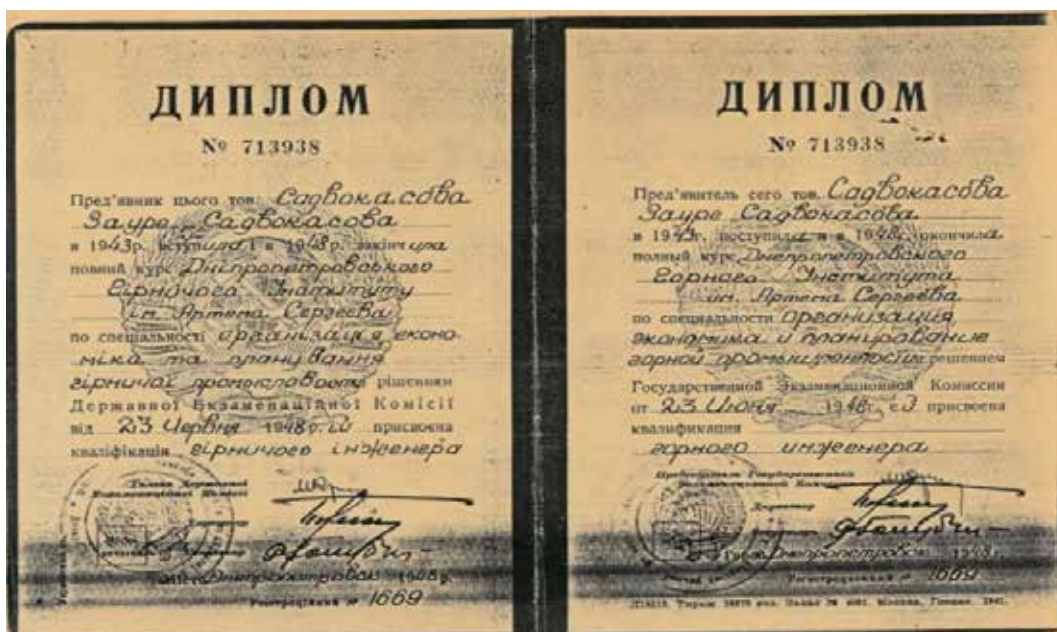 ДИПЛОМ
№ 713938
Пред'явник цього тов. Садвокасова
Зауре Садвокасова
в 1943р. вступила і в 1948р. закінчила
повний курс Дніпропетровського
Гірничого Інституту
ім. Артема Сергеєва
по спеціальності організація, еконо-
міка та планування
гірничої промисловости рішенням
Державної Екзаменаційної Комісії
від 23 Червня 1948р. ій присвоєна
кваліфікація гірничого інженера
Голова Державної
Екзаменаційної Комісії
Місто Дніпропетровськ 1948р.
Реєстраційний № 1669
ДИПЛОМ
№ 713938
Пред'явитель сего тов. Садвокасова
Зауре Садвокасова
в 1943г. поступила и в 1948г. окончила
полный курс Днепропетровского
Горного Института
им. Артема Сергеева
по специальности организация
экономика и планирование
горной промышленности решением
Государственной Экзаменационной Комиссии
от 23 Июня 1948г. ей присвоена
квалификация
горного инженера
Председатель Государственной
Экзаменационной Комиссии
Директор
Город Днепропетровск 1948г.
Регистрационный № 1669
Москва, Гознак. 1941.